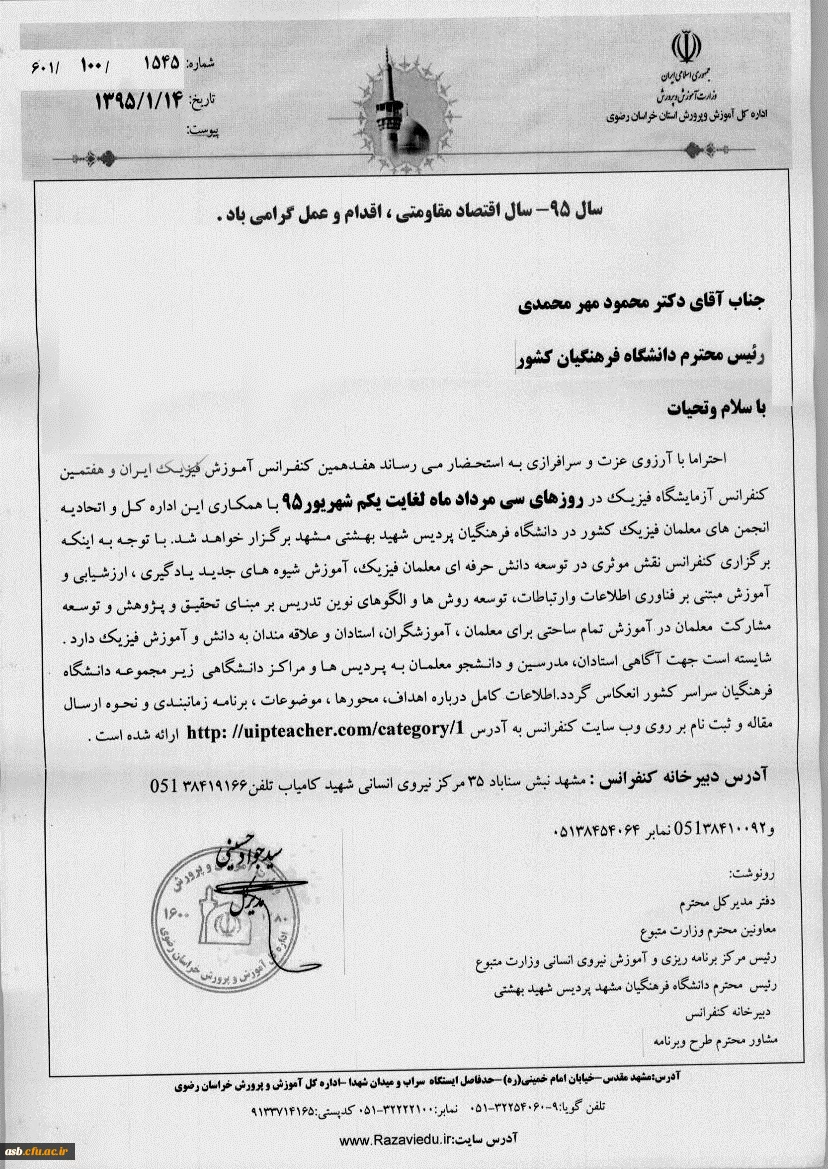 جمهوری اسلامی ایران
وزارت آموزش و پرورش
اداره کل آموزش و پرورش استان خراسان رضوی
شماره: ۱۵۴۵ / ۱۰۰ / ۶۰۱
تاریخ: ۱۳۹۵/۱/۱۴
پیوست:
سال ۹۵- سال اقتصاد مقاومتی ، اقدام و عمل گرامی باد .
جناب آقای دکتر محمود مهر محمدی
رئیس محترم دانشگاه فرهنگیان کشور
با سلام وتحیات
احتراما با آرزوی عزت و سرافرازی به استحضار می رساند هفدهمین کنفرانس آموزش فیزیک ایران و هفتمین
کنفرانس آزمایشگاه فیزیک در روزهای سی مرداد ماه لغایت یکم شهریور۹۵ با همکاری این اداره کل و اتحادیه
انجمن های معلمان فیزیک کشور در دانشگاه فرهنگیان پردیس شهید بهشتی مشهد برگزار خواهد شد. با توجه به اینکه
برگزاری کنفرانس نقش موثری در توسعه دانش حرفه ای معلمان فیزیک، آموزش شیوه های جدید یادگیری ، ارزشیابی و
آموزش مبتنی بر فناوری اطلاعات وارتباطات، توسعه روش ها و الگوهای نوین تدریس بر مبنای تحقیق و پژوهش و توسعه
مشارکت معلمان در آموزش تمام ساحتی برای معلمان ، آموزشگران، استادان و علاقه مندان به دانش و آموزش فیزیک دارد .
شایسته است جهت آگاهی استادان، مدرسین و دانشجو معلمان به پردیس ها و مراکز دانشگاهی زیر مجموعه دانشگاه
فرهنگیان سراسر کشور انعکاس گردد.اطلاعات کامل درباره اهداف، محورها ، موضوعات ، برنامه زمانبندی و نحوه ارسال
مقاله و ثبت نام بر روی وب سایت کنفرانس به آدرس http: //uipteacher.com/category/1 ارائه شده است .
آدرس دبیرخانه کنفرانس : مشهد نبش سناباد ۳۵ مرکز نیروی انسانی شهید کامیاب تلفن۳۸۴۱۹۱۶۶ 051
و۳۸۴۱۰۰۹۲ 051 نمابر ۰۵۱۳۸۴۵۴۰۶۴
سیدجواد حسینی
مدیرکل
اداره کل آموزش و پرورش خراسان رضوی
رونوشت:
دفتر مدیرکل محترم
معاونین محترم وزارت متبوع
رئیس مرکز برنامه ریزی و آموزش نیروی انسانی وزارت متبوع
رئیس محترم دانشگاه فرهنگیان مشهد پردیس شهید بهشتی
دبیرخانه کنفرانس
مشاور محترم طرح وبرنامه
آدرس:مشهد مقدس-خیابان امام خمینی(ره) -حدفاصل ایستگاه سراب و میدان شهدا -اداره کل آموزش و پرورش خراسان رضوی
تلفن گویا:۹-۳۲۲۵۴۰۶۰-۰۵۱ نمابر:۳۲۲۲۲۱۰۰-۰۵۱ کدپستی:۹۱۳۳۷۱۴۱۶۵
آدرس سایت:www.Razaviedu.ir
asb.cfu.ac.ir